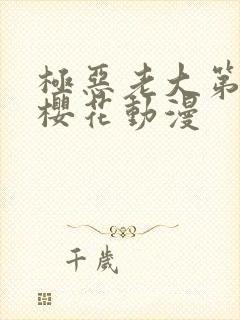 極惡老大第
櫻花動漫
千歲